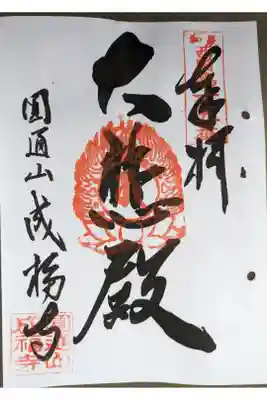 奉拝
大悲殿
圓通山成福寺